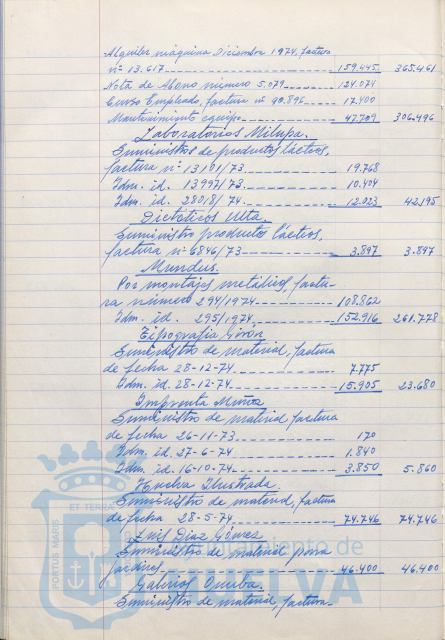 Alquiler máquina Diciembre 1974, factura
nº 13.617 159.445 365.461
Nota de Abono número 5.079 124.074
Curso Empleado, factura nº 90.896 17.400
Mantenimiento equipo 47.709 306.496
Laboratorios Milupa.
Suministros de productos lácteos,
factura nº 13191/73 19.768
Idm. id. 13997/73 10.404
Idm. id. 28018/74 12.023 42.195
Dietéticos Ulta.
Suministro productos lácteos,
factura nº 6846/73 3.897 3.897
Mundus.
Por montajes metálicos, factu-
ra número 294/1974 108.862
Idm. id. 295/1974 152.916 261.778
Tipografía Girón
Suministro de material, factura
de fecha 28-12-74 7.775
Idm. id. 28-12-74 15.905 23.680
Imprenta Muñoz
Suministro de material factura
de fecha 26-11-73 170
Idm. id. 27-6-74 1.840
Idm. id. 16-10-74 3.850 5.860
Huelva Ilustrada.
Suministro de material, factura
de fecha 28-5-74 74.746 74.746
Luis Díaz Gómez
Suministro de material para
jardines 46.400 46.400
Galerías
Suministro de material, factura
PORTUS MARIS ET TERRAE
Ayuntamiento de
HUELVA